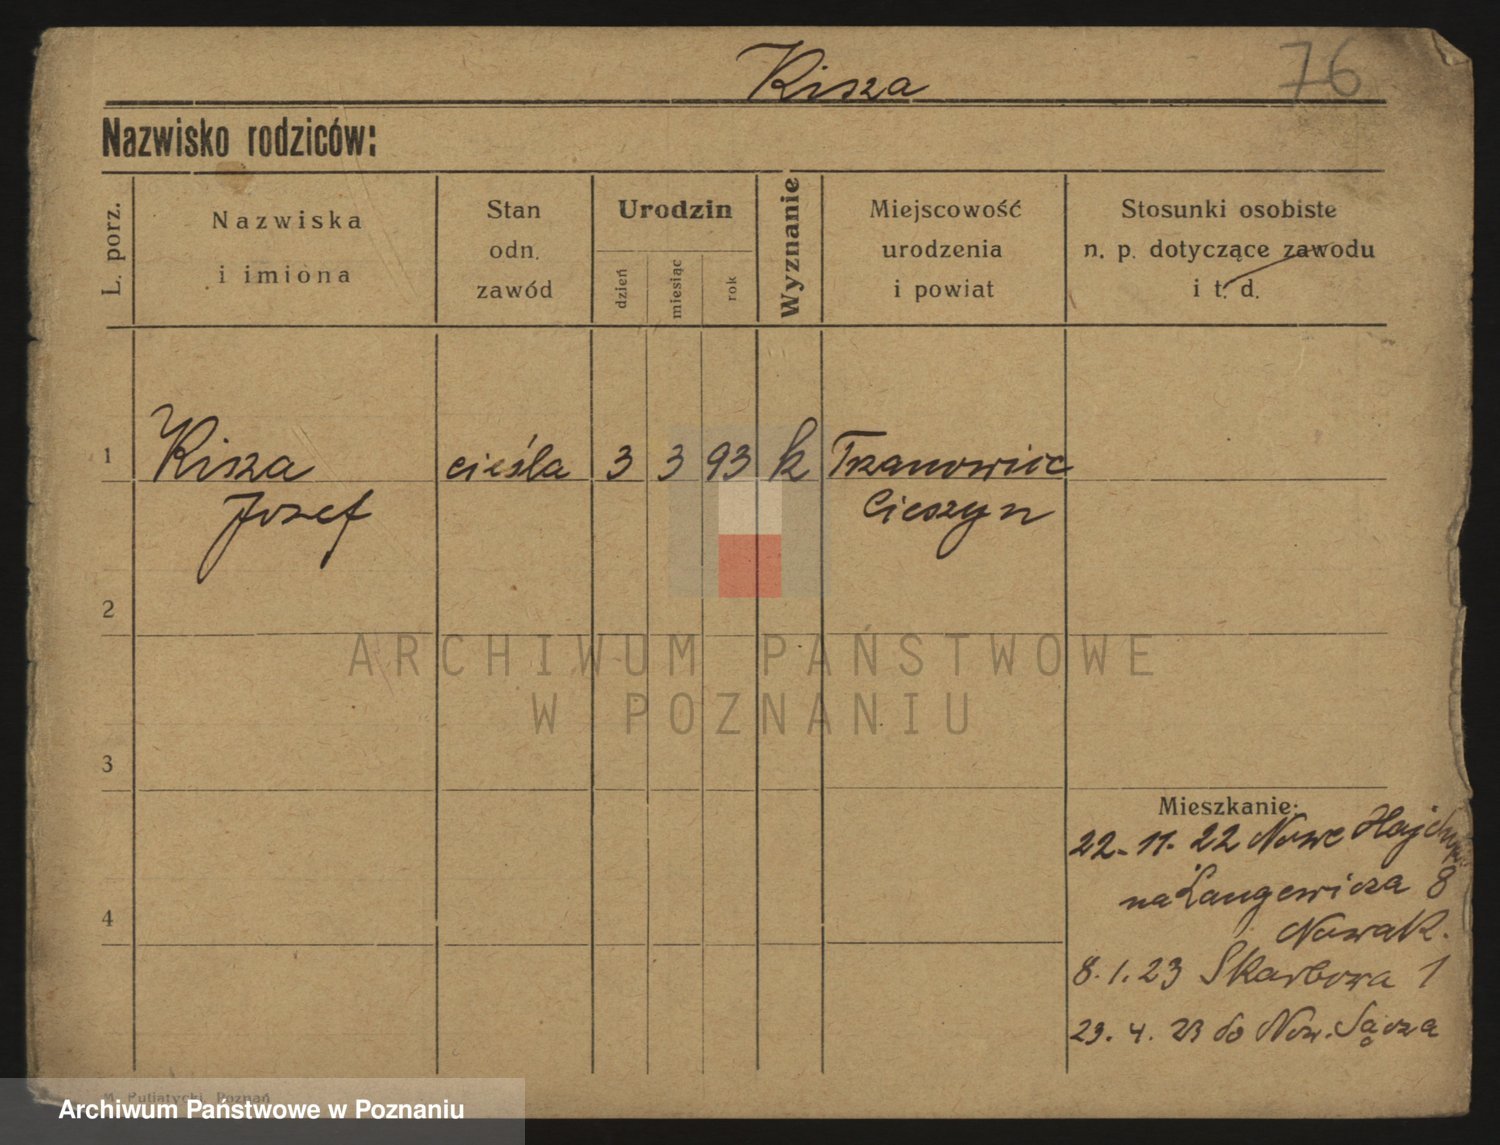 Kisza
76
Nazwisko rodziców:
L. porz.
Nazwiska
i imiona
Stan
odn.
zawód
Urodzin
dzień
miesiąc
rok
Wyznanie
Miejscowość
urodzenia
i powiat
Stosunki osobiste
n. p. dotyczące zawodu
i t. d.
1
Kisza
Jozef
cieśla
3
3
93
k
Trzanowice
Cieszyn
2
3
4
Mieszkanie:
22-11-22 Nowe
na Langewicza 8
Nowak.
8.1.23 Skarbowa 1
23.4.23 do Now. Sącza
ARCHIWUM PAŃSTWOWE
W POZNANIU
M. Putiatycki, Poznań
Archiwum Państwowe w Poznaniu